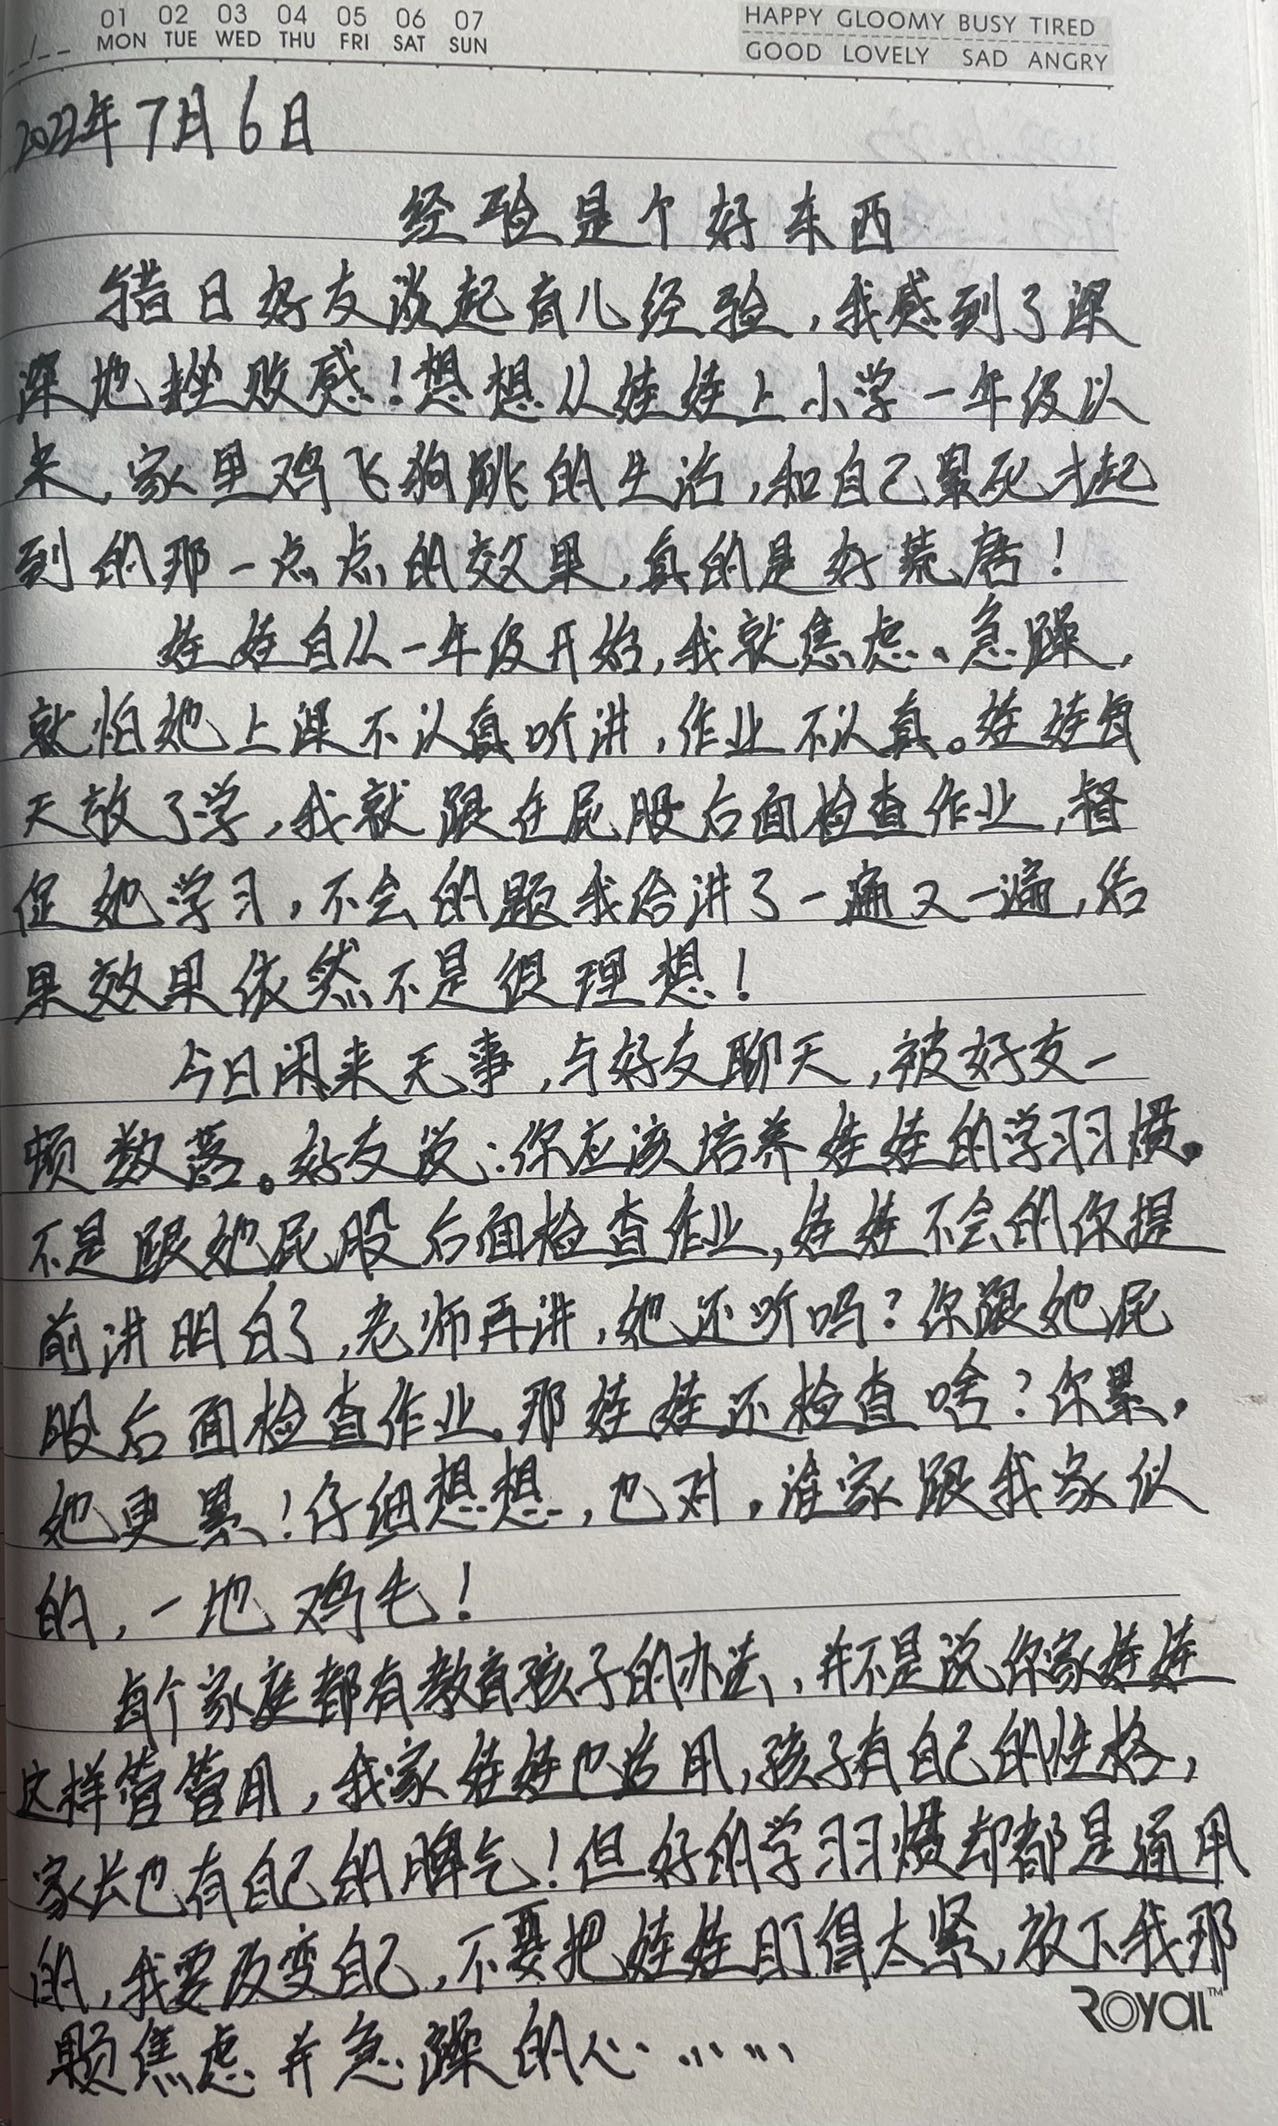 01 02 03 04 05 06 07
MON TUE WED THU FRI SAT SUN
HAPPY GLOOMY BUSY TIRED
GOOD LOVELY SAD ANGRY
2022年7月6日
经验是个好东西
错日好友谈起育儿经验,我感到了深
深地挫败感!想想从娃娃上小学一年级以
来,家里鸡飞狗跳的生活,和自己累死才起
到的那一点点的效果,真的是好荒唐!
娃娃自从一年级开始,我就焦虑、急躁,
就怕她上课不认真听讲,作业不认真。娃娃每
天放了学,我就跟在屁股后面检查作业,督
促她学习,不会的题我给讲了一遍又一遍,结
果效果依然不是很理想!
今日闲来无事,与好友聊天,被好友一
顿数落。好友说:你应该培养娃娃的学习习惯。
不是跟她屁股后面检查作业,娃娃不会的你提
前讲明白了,老师再讲,她还听吗?你跟她屁
股后面检查作业,那娃娃还检查啥?你累,
她更累!仔细想想,也对,谁家跟我家似
的,一地鸡毛!
每个家庭都有教育孩子的办法,并不是说你家娃娃
这样管管用,我家娃娃也适用,孩子有自己的性格,
家长也有自己的脾气!但好的学习习惯却都是通用
的,我要改变自己,不要把娃娃盯得太紧,放下我那
颗焦虑并急躁的心……
ROYAL™